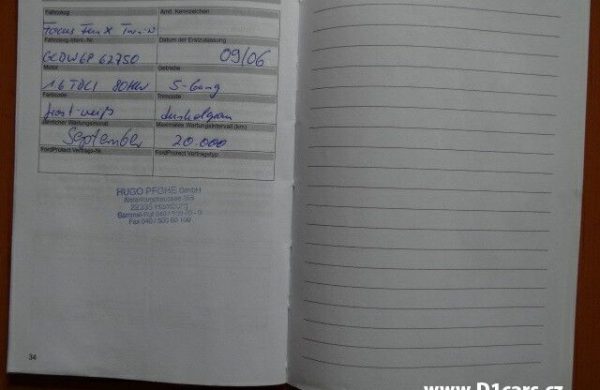 Fahrzeug Amtl. Kennzeichen
Focus
Fahrzeug-Ident.-Nr. Datum der Erstzulassung
62750 09/06
Motor Getriebe
1.6 TDCI 80KW 5-Gang
Farbcode Trimcode
frost-weiß dunkelgrau
Jährlicher Wartungsmonat Maximales Wartungsintervall (km)
September 20.000
FordProtect Vertrags-Nr. FordProtect Vertragstyp
HUGO PFOHE GmbH
22335 Hamburg
34
www.D1cars.cz